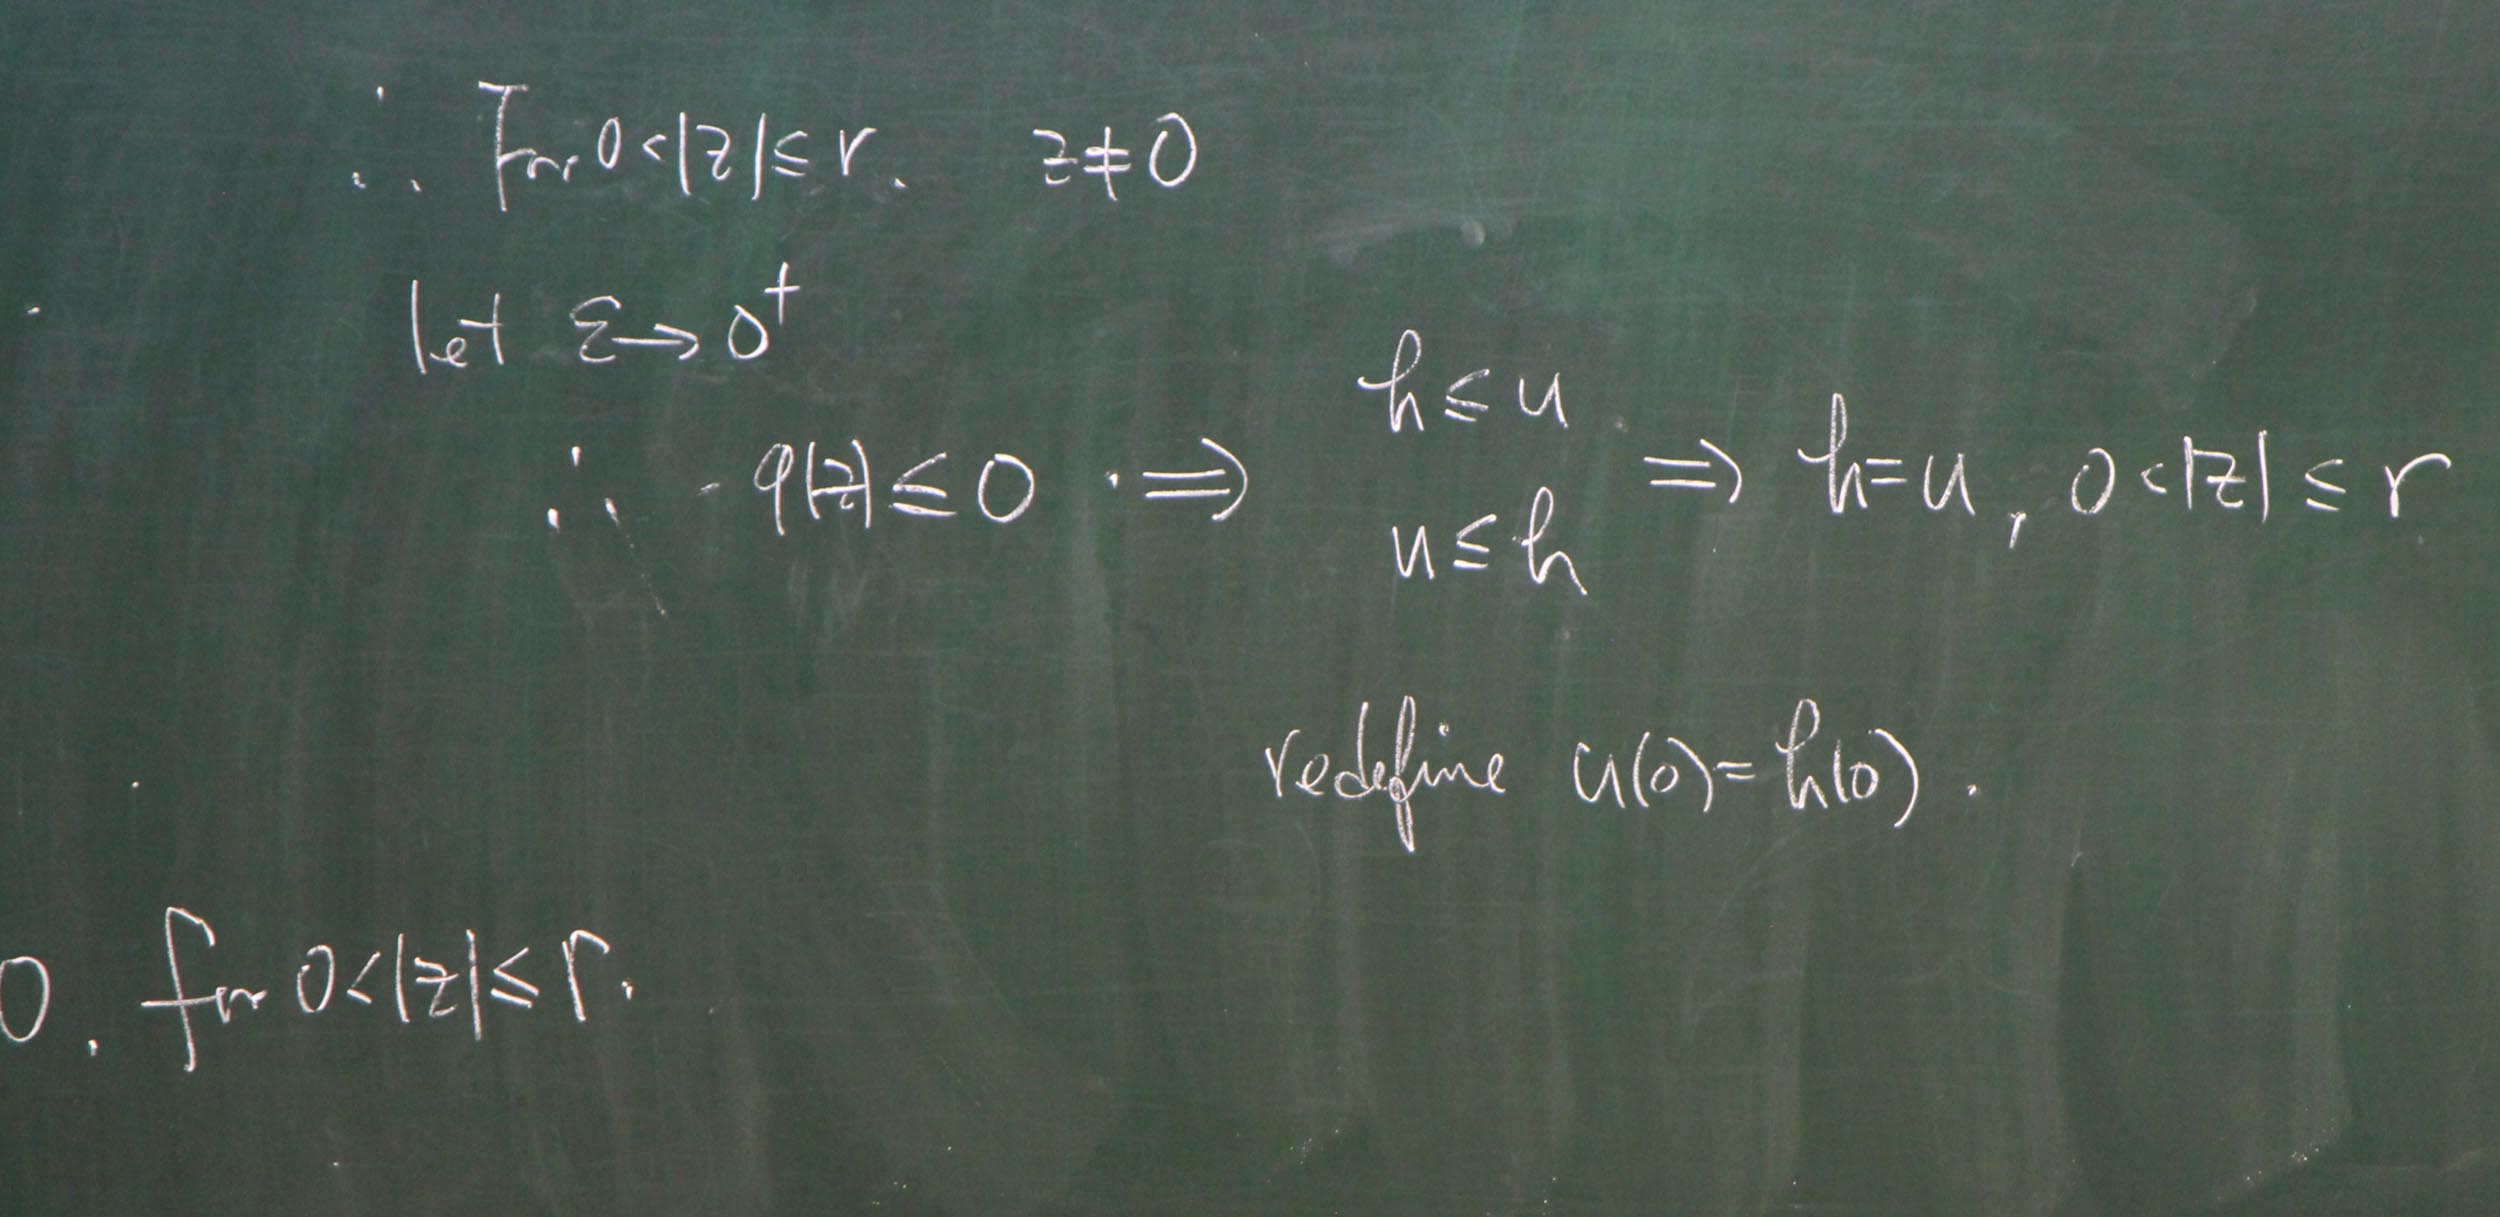 ∴ For 0<|z|≤r. z≠0
let ε→0⁺
∴ φ(z)≤0 ⇒ h≤u u≤h ⇒ h=u, 0<|z|≤r
redefine u(0)=h(0).
0. for 0<|z|≤r.